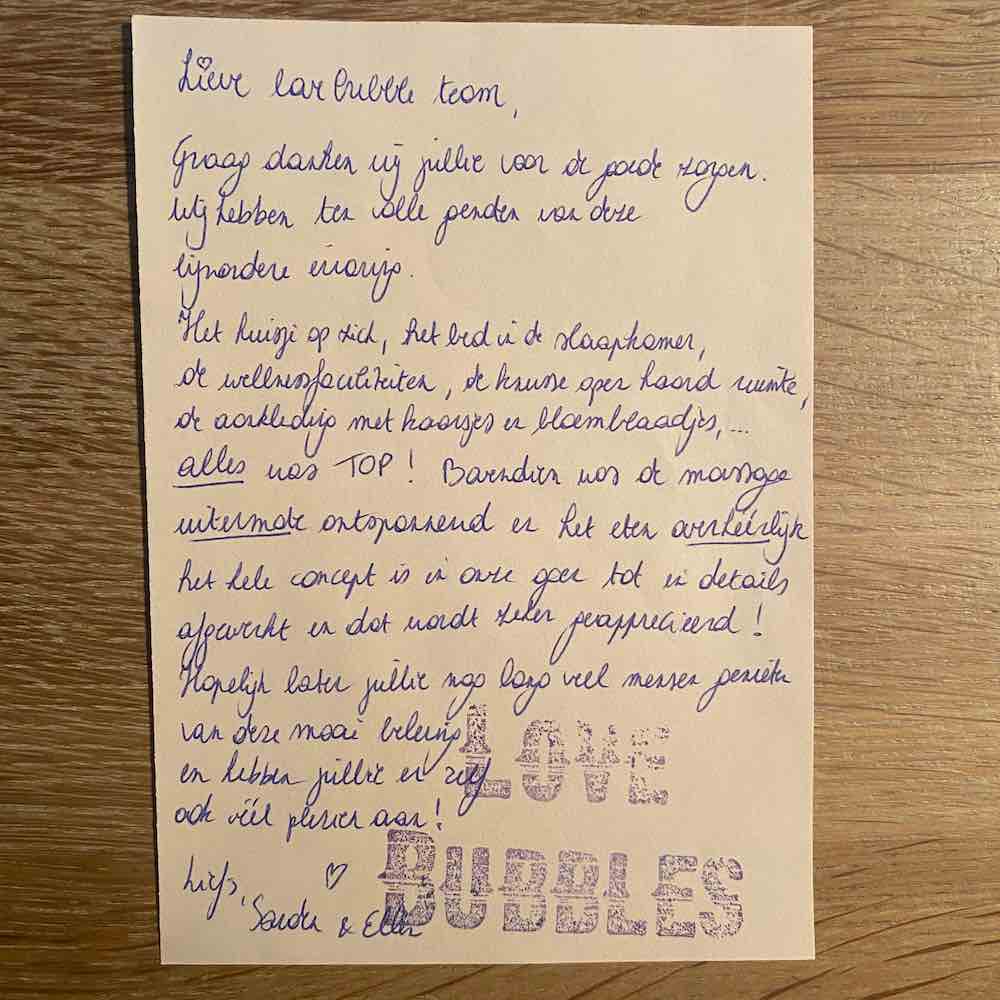 Lieve Lovebubble team,
Graag danken wij jullie voor de goede zorgen.
Wij hebben ten volle genoten van deze
bijzondere ervaring.
Het huisje op zich, het bed in de slaapkamer,
de wellnessfaciliteiten, de knusse open haard ruimte,
de aankleding met kaarsjes en bloemblaadjes, ...
alles was TOP! Bovendien was de massage
uitermate ontspannend en het eten overheerlijk
het hele concept is in onze ogen tot in details
afgewerkt en dat wordt zeker geapprecieerd!
Hopelijk laten jullie nog lang veel mensen genieten
van deze mooie beleving
en hebben jullie er zelf
ook véél plezier aan!
Liefs,
Sander & Ellen
LOVE
BUBBLES